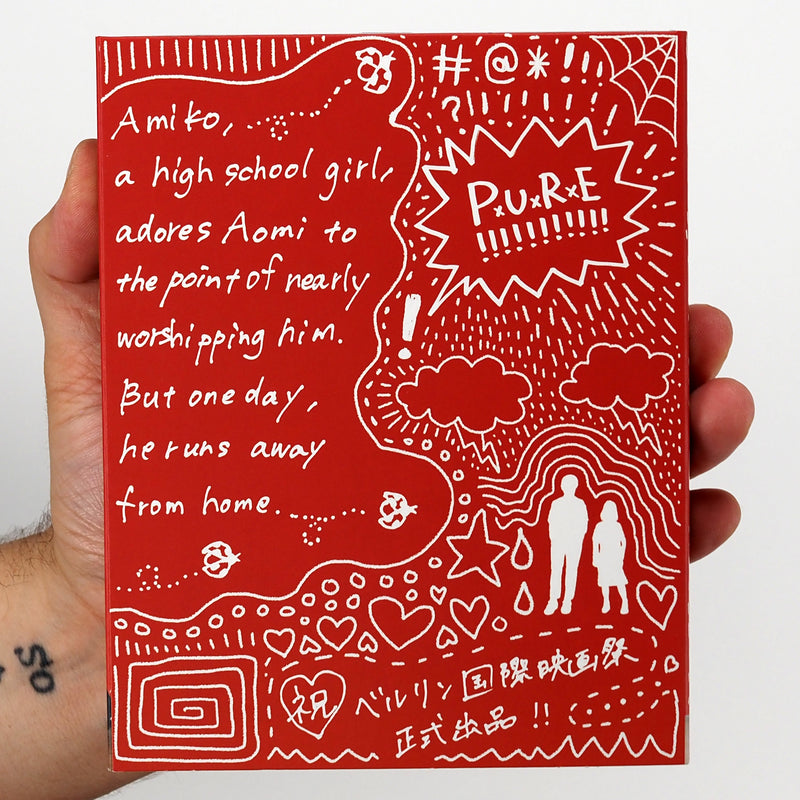 Amiko,
a high school girl,
adores Aomi to
the point of nearly
worshipping him.
But one day,
he runs away
from home.
#@*!!
?!!!!!!!
P×U×R×E
!!!!!!!!!!!
!
祝 ベルリン国際映画祭
正式出品!!